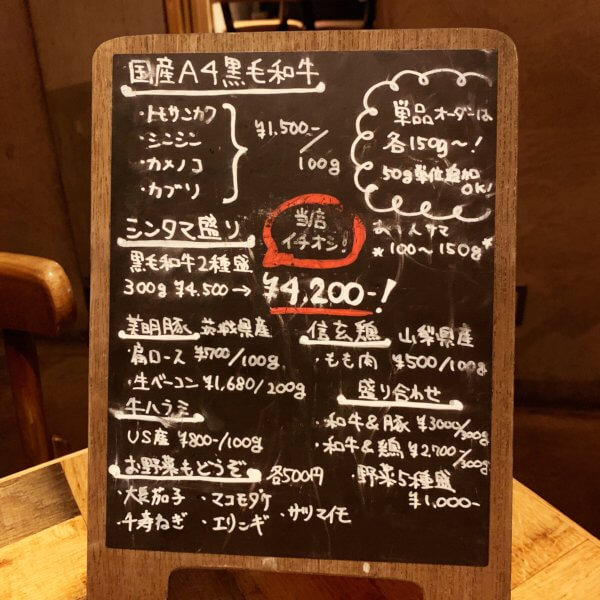 国産A4黒毛和牛
・トモサンカク
・シンシン
・カメノコ
・カブリ
¥1,500-/100g
単品オーダーは
各150g〜!
50g単位追加
OK!
シンタマ盛り
当店
イチオシ!
お一人サマ
*100〜150g*
黒毛和牛2種盛
300g ¥4,500→
¥4,200-!
美明豚 茨城県産
・肩ロース ¥700/100g
・生ベーコン ¥1,680/200g
牛ハラミ
US産 ¥800-/100g
信玄鶏 山梨県産
・もも肉 ¥500/100g
盛り合わせ
・和牛&豚 ¥3000/300g
・和牛&鶏 ¥2,700-/300g
野菜5種盛
¥1,000-
お野菜もどうぞ 各500円
・大長茄子 ・マコモダケ
・千寿ねぎ ・エリンギ ・サツマイモ